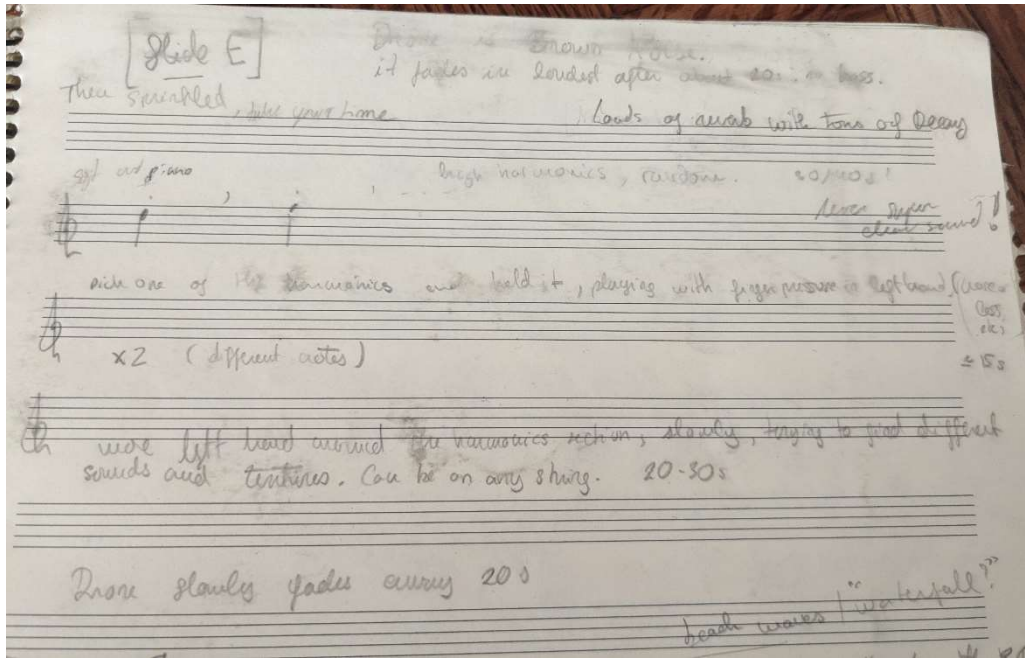 [Glide E]
Drone is Brown Noise.
it fades in loudest after about 20s. in bass.
Then sprinkled, take your time
Loads of with tons of Decay
soft piano
high harmonics, random. 30/40s
Never super
clean sound!
pick one of the harmonics and hold it, playing with finger pressure in left hand. (more
less,
etc)
x2 (different notes)
≈ 15s
move left hand around the harmonics section, slowly, trying to find different
sounds and textures. Can be on any string. 20-30s
Drone slowly fades away 20s
beach waves / "waterfall?"